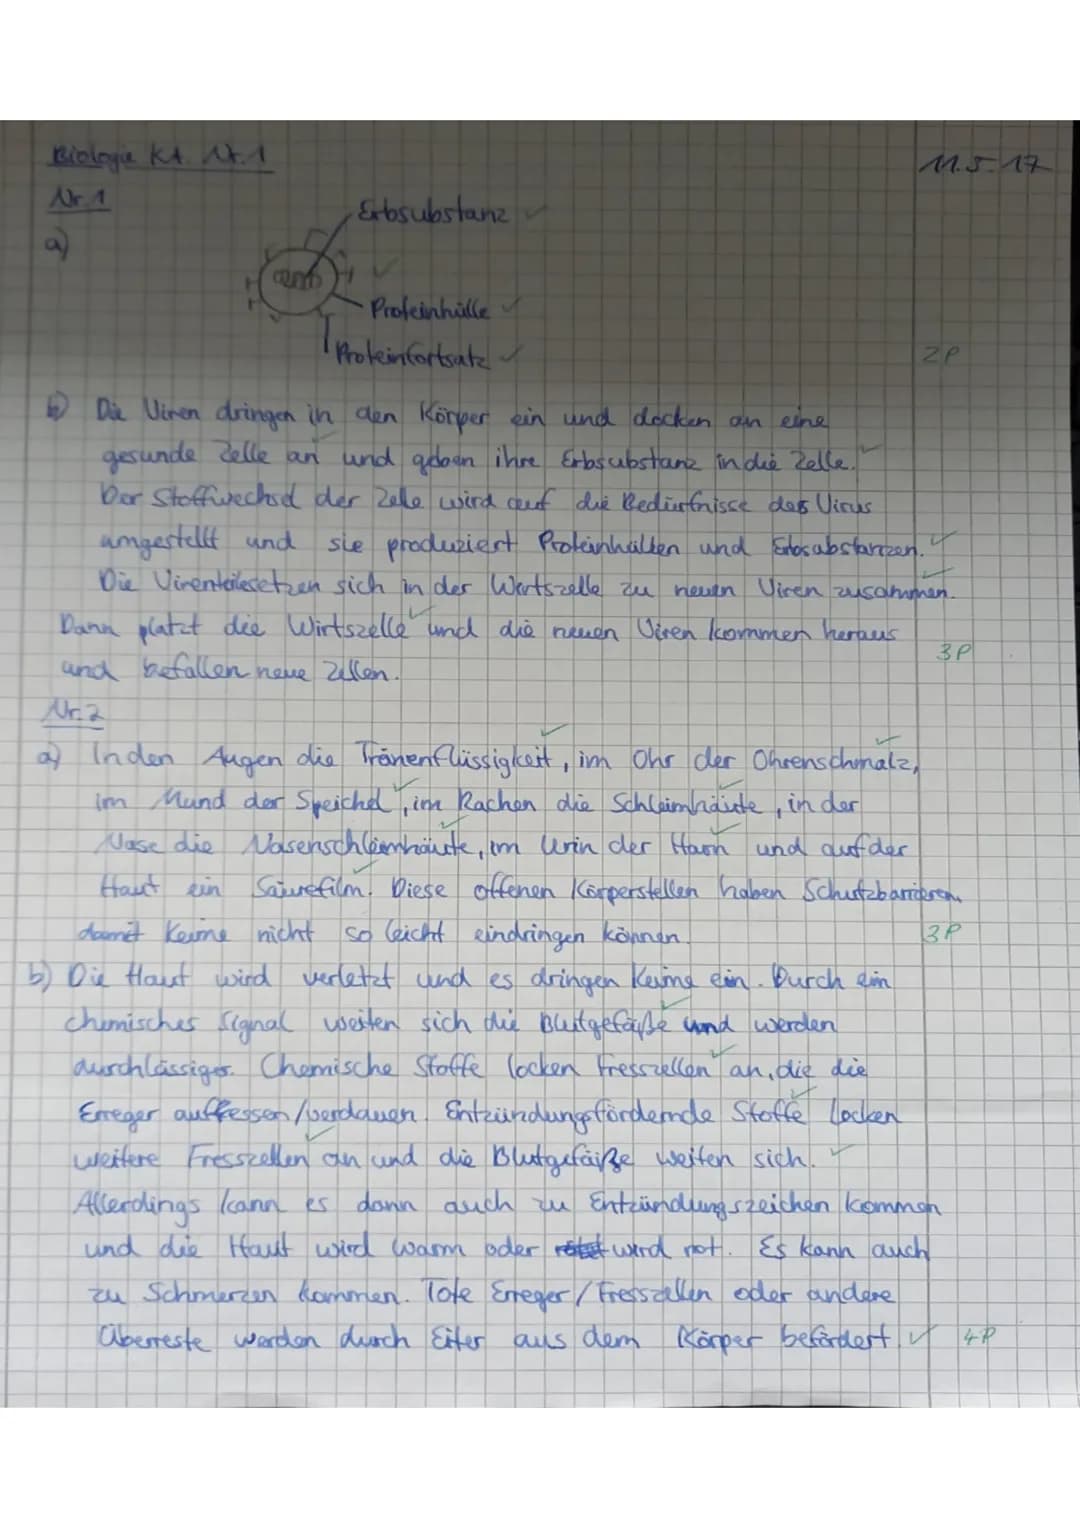 Biologie KA Nr.1
11.5.17
Nr.1
a)
Erbsubstanz
Proteinhülle
Proteinfortsatz
2P
b) Die Viren dringen in den Körper ein und docken an eine
gesunde Zelle an und geben ihre Erbsubstanz in die Zelle.
Der Stoffwechsel der Zelle wird auf die Bedürfnisse des Virus
umgestellt und sie produziert Proteinhüllen und Erbsubstanzen.
Die Virenteile setzen sich in der Wirtszelle zu neuen Viren zusammen.
Dann platzt die Wirtszelle und die neuen Viren kommen heraus
und befallen neue Zellen.
3P
Nr.2
a) In den Augen die Tränenflüssigkeit, im Ohr der Ohrenschmalz,
im Mund der Speichel, im Rachen die Schleimhäute, in der
Nase die Nasenschleimhäute, im Urin der Harn und auf der
Haut ein Säurefilm. Diese offenen Körperstellen haben Schutzbarrieren,
damit Keime nicht so leicht eindringen können.
3P
b) Die Haut wird verletzt und es dringen Keime ein. Durch ein
chemisches Signal weiten sich die Blutgefäße und werden
durchlässiger. Chemische Stoffe locken Fresszellen an, die die
Erreger auffessen/verdauen. Entzündungsfördernde Stoffe locken
weitere Fresszellen an und die Blutgefäße weiten sich.
Allerdings kann es dann auch zu Entzündungszeichen kommen
und die Haut wird warm oder wird rot. Es kann auch
zu Schmerzen kommen. Tote Erreger/Fresszellen oder andere
Überreste werden durch Eiter aus dem Körper befördert.
4P